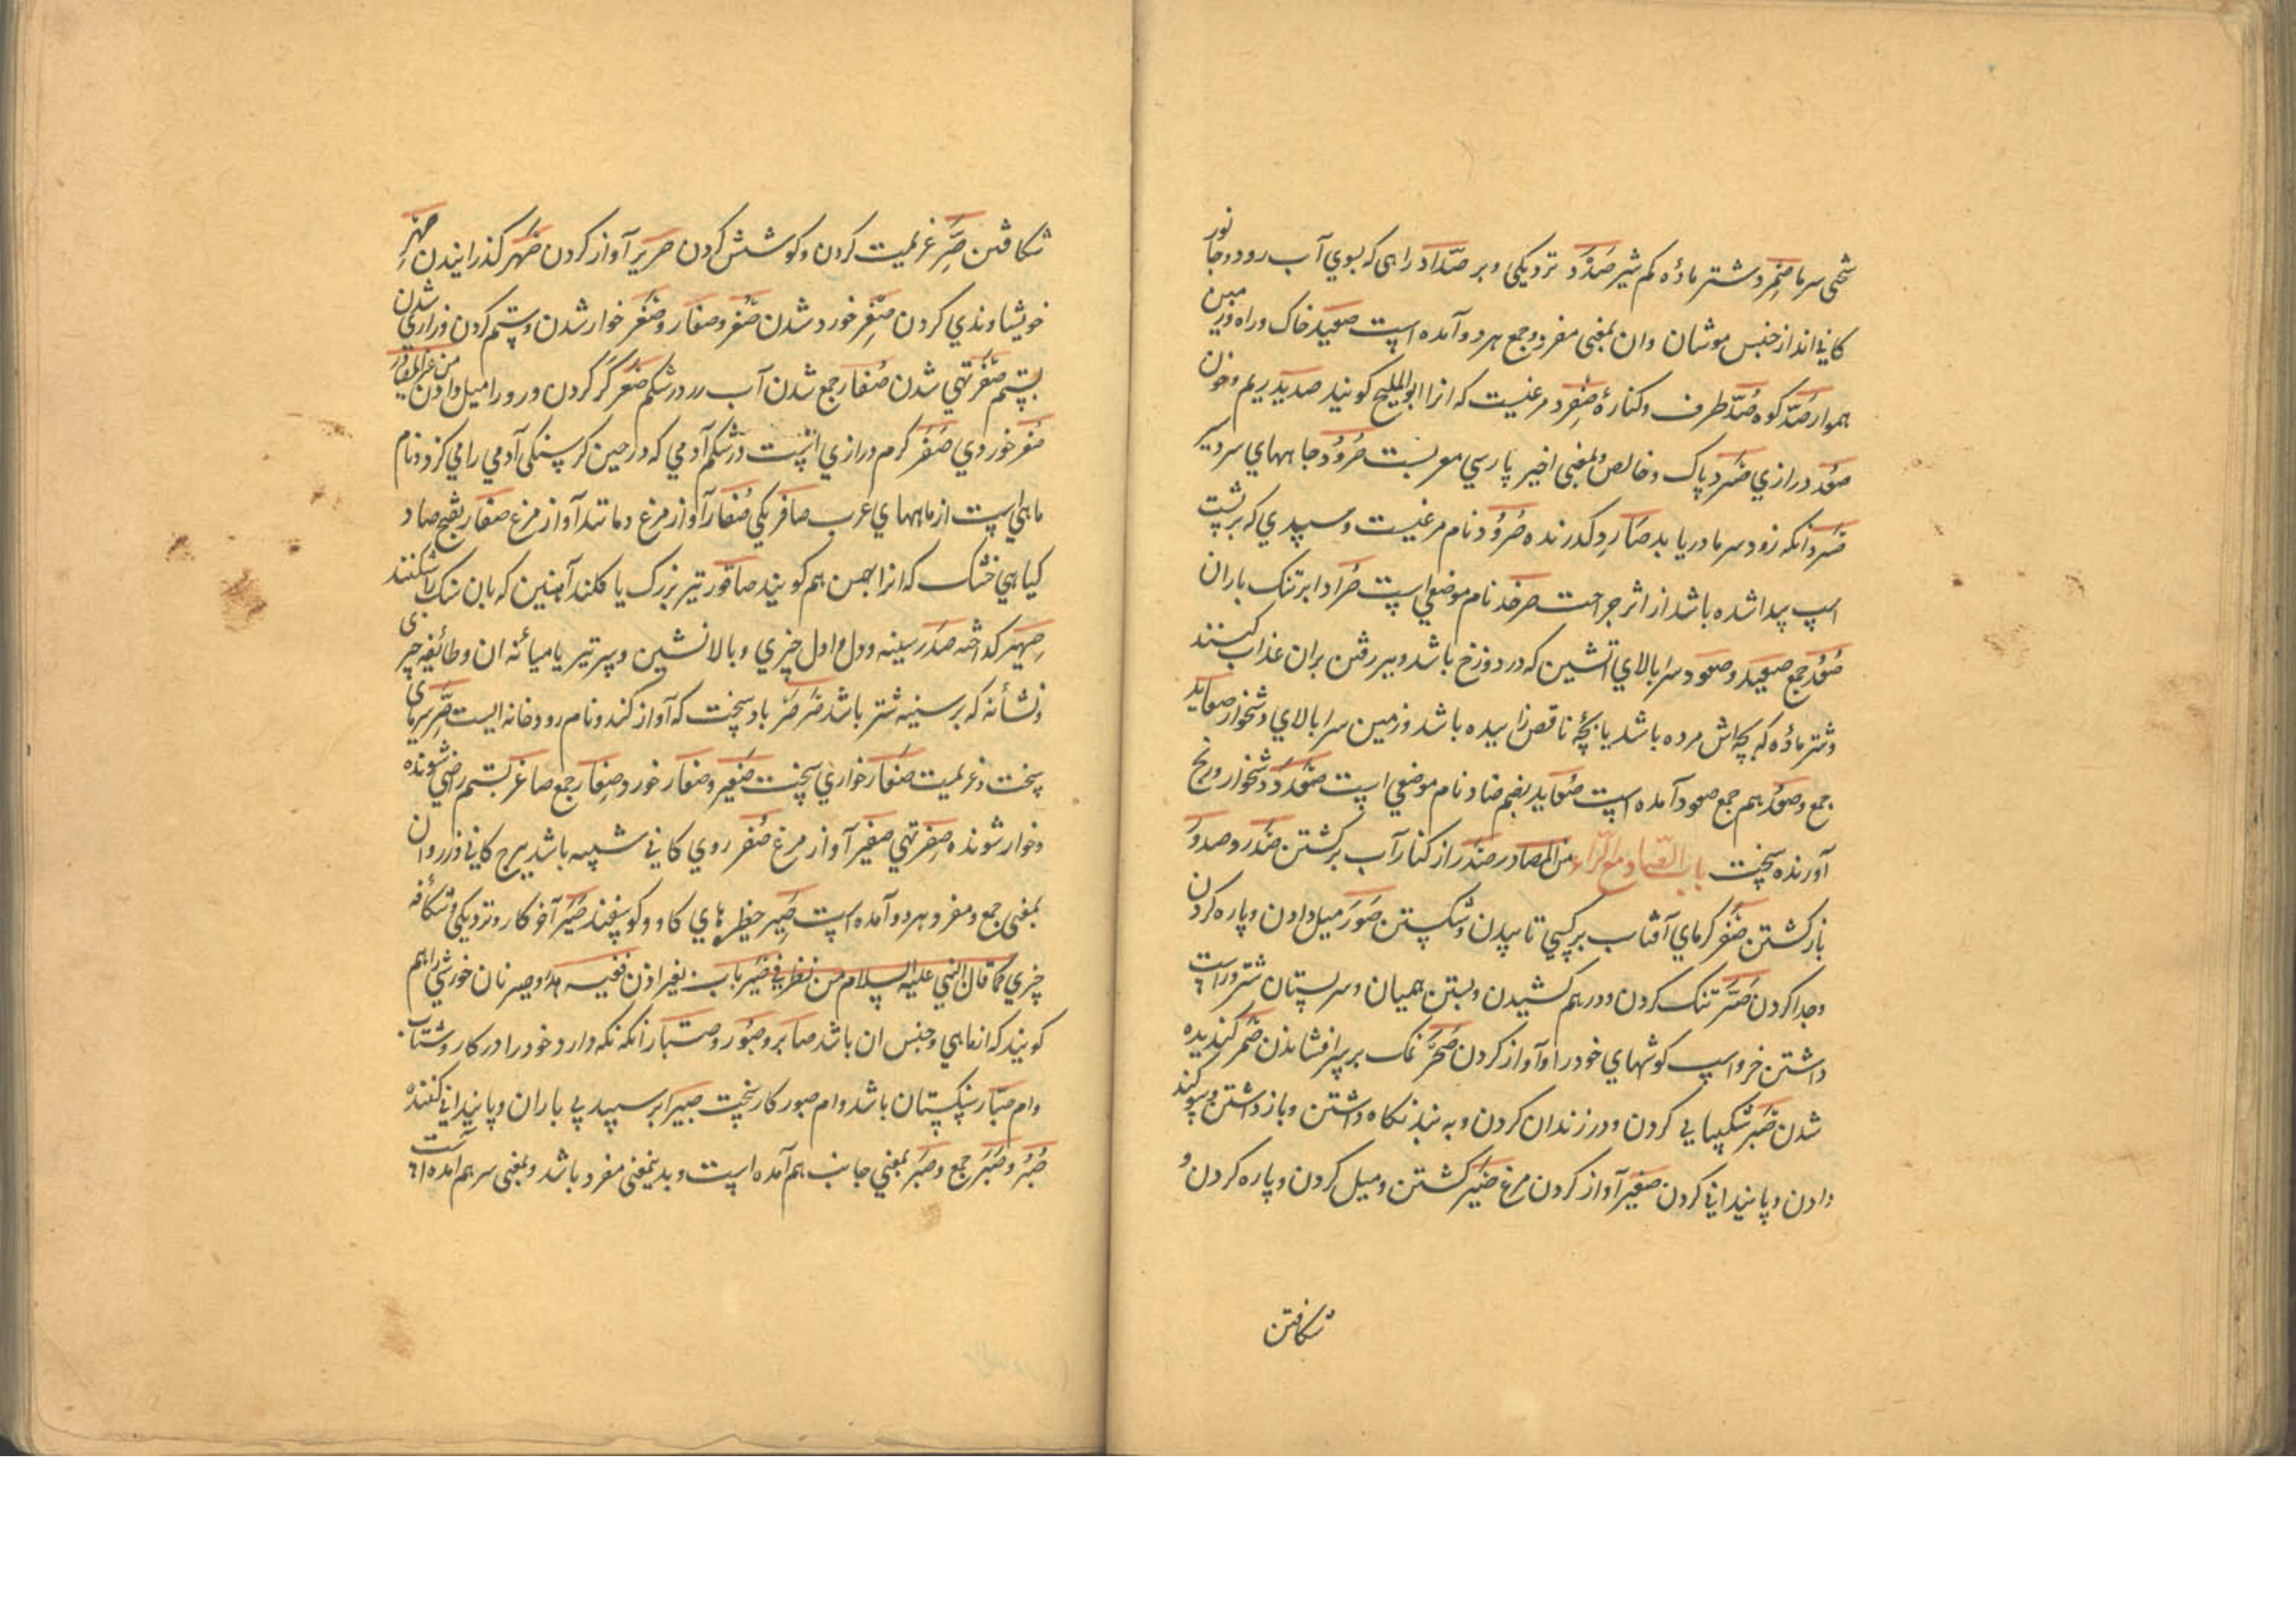 سختی سرما صمرد شتر ماده کم شیر صدد نزدیکی و برابر صداد راهی که بسوی آب رود و جانور
کانی انداز جنس موشان وان بمعنی مفرد و جمع هر دو آمده است صعید خاک و راه و زمین
هموار صد کوه صد طرف و کناره صفرد مرغیست که انرا ابو الملیح کویند صدید ریم و خون
صعد درازی صرد پاک و خالص و بمعنی اخیر پارسی معربست صرود جاهای سردسیر
صرد انکه زود سرما دریابد صارد کذرنده صرد نام مرغیست و سپیدی که بر پشت
اسپ پیدا شده باشد از اثر جراحت صرخد نام موضعی است صراد ابر تنک باران
صعد جمع صعید و صعود سرا بالای آتشین که در دوزخ باشد و ببر رفتن بران عذاب کنند
و شتر ماده که بچه اش مرده باشد یا بچه ناقص زاییده باشد و زمین سرا بالای و دشخوار صعاید
جمع و صعد هم جمع صعود آمده است صعاید بضم صاد نام موضعی است دشخوار و رنج
آورنده سخت باب الصاد مع الراء من المصادر صدر از کنار آب برکشتن صدر و صدور
بازکشتن صقر کرمای آفتاب بر کسی تابیدن و شکستن صور میل دادن و پاره کردن
و جدا کردن صر تنک کردن و درهم کشیدن و بستن همیان و سر پستان شتر و راست
داشتن خر و اسپ کوشهای خود را و آواز کردن نمک بر افشاندن صمر کندیده
شدن صبر شکیبایی کردن و در زندان کردن و به بند نکاه داشتن و باز داشتن و سوکند
دادن و پایندانی کردن صفیر آواز کردن مرغ صیر کشتن و میل کردن و پاره کردن و
شکافتن
شکافتن صر عزیمت کردن و کوشش کردن صریر آواز کردن صهر کذرانیدن صهر
خویشاوندی کردن صغر خورد شدن صغر و صغار و صغر خوار شدن و ستم کردن و راضی شدن
بستم صفر تهی شدن صفار جمع شدن آب زرد در شکم صعر کژ کردن و رو را میل دادن من غیر المصادر
صغر خوردی صفر کرم درازی است در شکم آدمی که در حین کرسنکی آدمی را می کزد و نام
ماهی است از ماههای عرب صافر یکی صفار آواز مرغ و مانند آواز مرغ صفار بفتح صاد
کیاهی خشک که انرا بهمن هم کویند صاقور تبر بزرک یا کلند آهنین که بان سنک را شکنند
صهیر کداخته صدر سینه و دل و اول چیزی و بالانشین و سر تیر یا میانه ان و طائفه چیزی
و نشانه که بر سینه شتر باشد صرصر باد سخت که آواز کند و نام رودخانه ایست صر سرمای
سخت و عزیمت صغار خواری سخت صغیر و صغار خورد و صغار جمع صاغر بستم راضی شونده
و خوار شونده صفر تهی صفیر آواز مرغ صفر روی کانی شبیه باشد ببرج کانی و زر و ان
بمعنی جمع و مفرد هر دو آمده است صیر حظیرهای کاو و کوسفند صیر آخر کار و نزدیکی و شکاف
چیزی کما قال النبی علیه السلام من نظر فی صیر باب بغیر اذن ففیه هدر و صیر نان خورشی را هم
کویند که از ماهی و جنس ان باشد صابر و صبور و صبار انکه نکه دارد خود را در کار و شتاب
و ام صبار سنکستان باشد و ام صبور کار سخت صبیر ابر سپید بی باران و پایندانی کننده
صبر و صبر جمع و صبر بمعنی جانب هم آمده است و بدینمعنی مفرد باشد و بمعنی سر هم آمده است